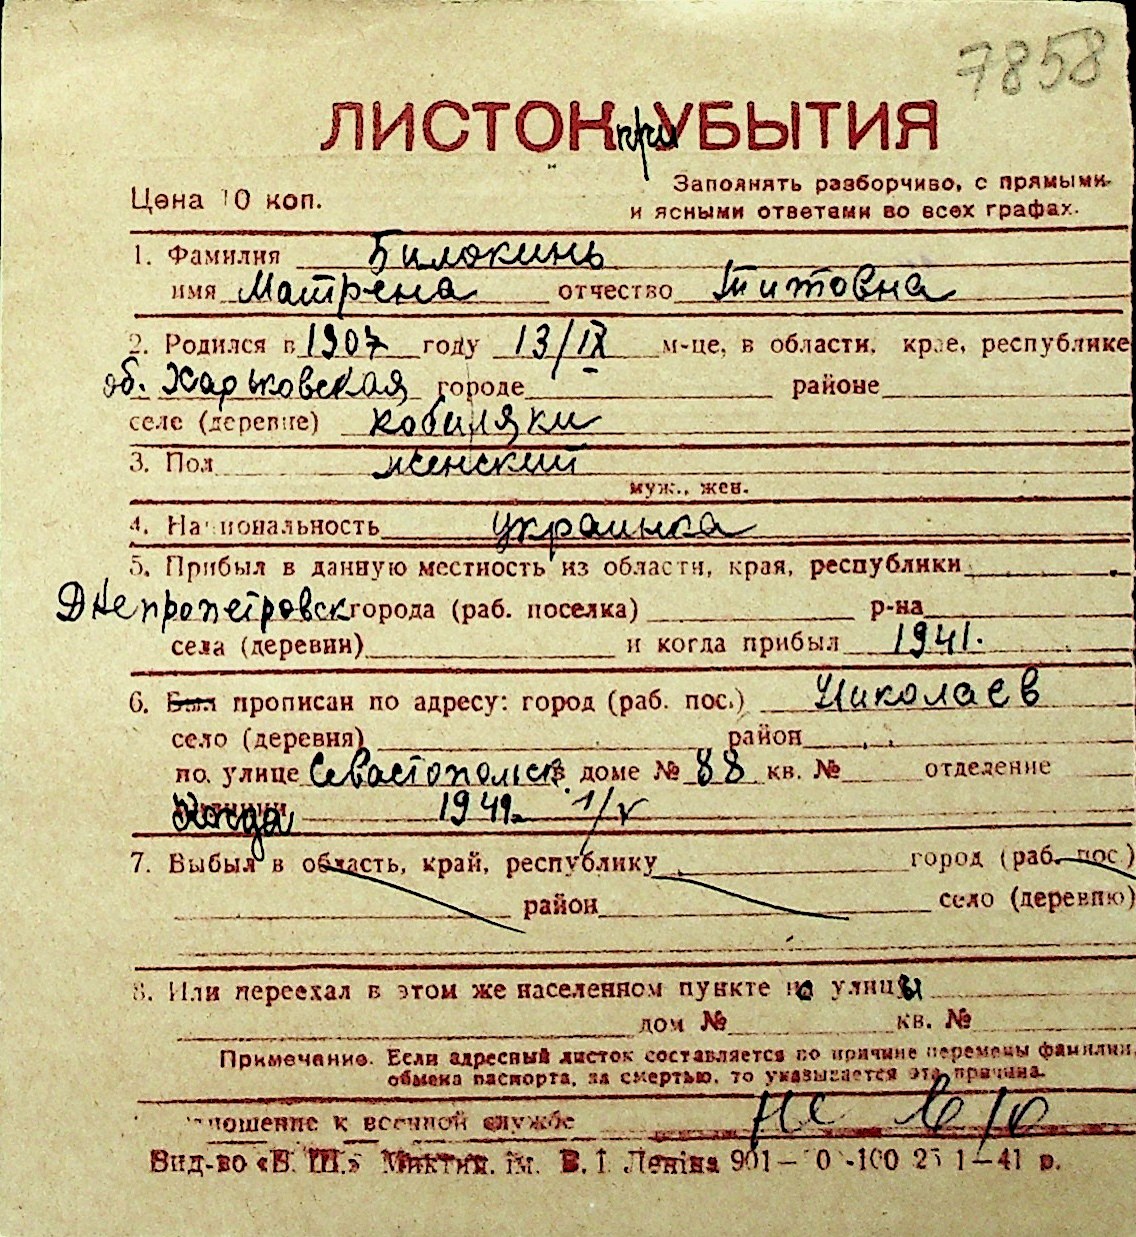 7858
ЛИСТОК при УБЫТИЯ
Цена 10 коп.
Заполнять разборчиво, с прямыми
и ясными ответами во всех графах.
1. Фамилия Билокинь
имя Матрена отчество Титовна
2. Родился в 1907 году 13/IX м-це, в области, крае, республике
об. Харьковская городе районе
селе (деревне) Кобиляки
3. Пол женский
муж., жен.
4. Национальность украинка
5. Прибыл в данную местность из области, края, республики
Днепропетровск города (раб. поселка) р-на
села (деревни) и когда прибыл 1941.
6. Был прописан по адресу: город (раб. пос.) Николаев
село (деревня) район
по улице Севастопольск в доме № 88 кв. № отделение
Когда 1941 1/V
7. Выбыл в область, край, республику город (раб. пос.)
район село (деревню)
8. Или переехал в этом же населенном пункте на улицы
дом № кв. №
Примечание. Если адресный листок составляется по причине перемены фамилии,
обмена паспорта, за смертью, то указывается эта причина.
ношение к военной службе не в/о
Вид-во «Б. Ш.» Миктип. ім. В. І. Леніна 901— 0 -100 25 1—41 р.